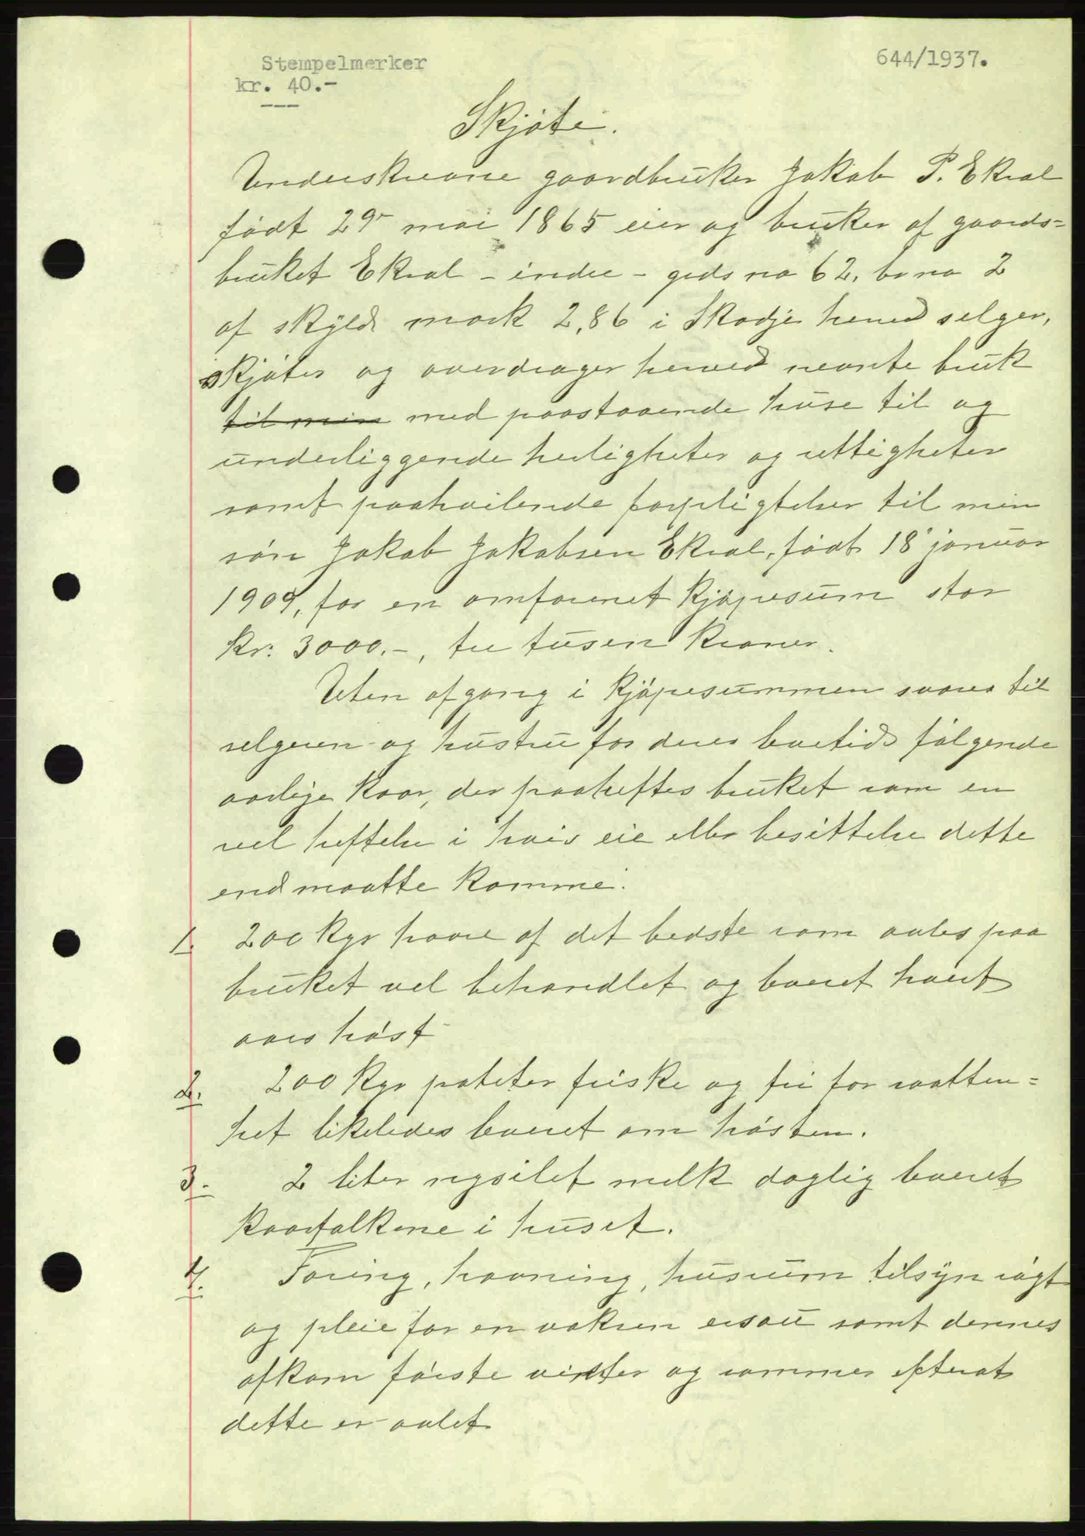 Stempelmerker
kr. 40.-
644/1937.
Skjøte.
Underskrevne gaardbruker Jakob P. Ekral
født 29de mai 1865 eier og bruker af gaards=
bruket Ekral - indre - gards no 62, br no 2
af skyld mark 2,86 i Skodje herved selger,
skjøter og overdrager herved nevnte bruk
til min med paastaaende huse til og
underliggende herligheter og rettigheter
samt paahvilende forpligtelser til min
søn Jakob Jakobsen Ekral, født 18 januar
1909, for en omforenet kjøpesum stor
kr. 3000.-, tre tusen kroner.
Uten afgang i kjøpesummen svares til
selgeren og hustru for deres levetid følgende
aarlige kaar, der paaheftes bruket som en
reel heftelse i hvis eie eller besittelse dette
end maatte komme.
1. 200 kgr havre af det bedste som avles paa
bruket vel behandlet og levert hvert
aars høst
2. 200 kgr poteter friske og fri for raatten=
het likeledes leveret om høsten.
3. 2 liter nysilet melk daglig leveret
kaarfolkene i huset.
4. Foring, havning, husrum tilsyn røgt
og pleie for en voksen ersau samt dennes
afkom første vinter og sommer efterat
dette er avlet